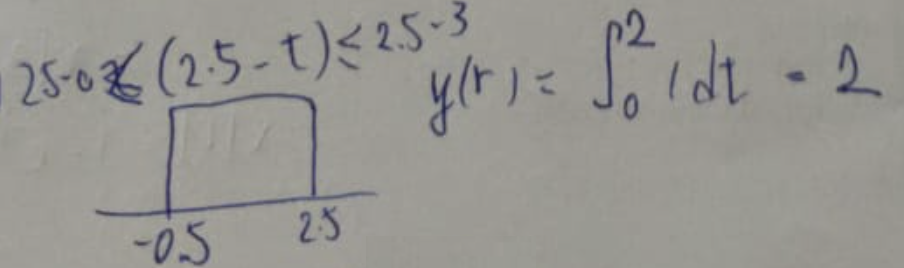 2.5-0 ≤ (2.5-t) ≤ 2.5-3
y(t) = ∫₀² 1 dt = 2
-0.5 2.5